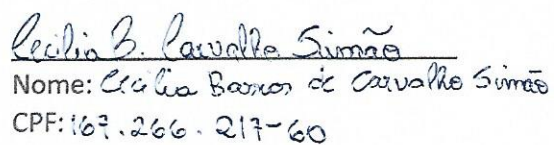 Cecilia B. Carvalho Simão
Nome: Cecilia Barros de Carvalho Simão
CPF: 167.266.217-60